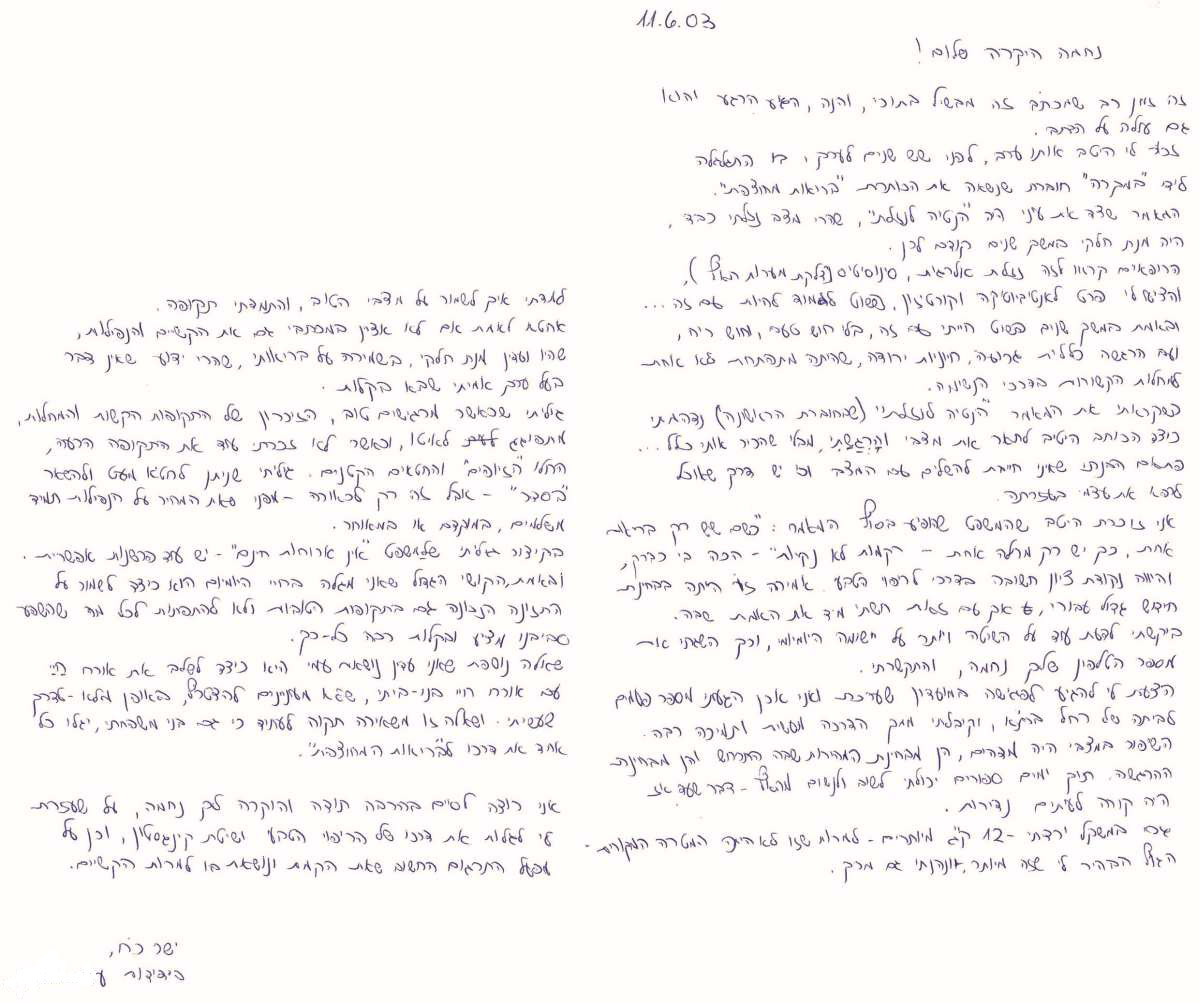 11.6.03
נחמה היקרה שלום!
זה זמן רב שמכתב זה מבשיל בתוכי, והנה, הגיע הרגע והוא
גם עולה על הכתב.
זכור לי היטב אותו ערב, לפני שש שנים לערך, בו התגלגלה
לידי "במקרה" חוברת שנשאה את הכותרת "בריאות מחוצפת".
המאמר שצד את עיני היה "הנטיה לנזלת", שהרי מצב נזלתי כבד,
היה מנת חלקי במשך שנים קודם לכן.
הרופאים קראו לזה נזלת אלרגית, סינוסיטיס (דלקת מערות האף),
והציעו לי פרט לאנטיביוטיקה וקורטיזון, פשוט ללמוד לחיות עם זה...
ובאמת במשך שנים פשוט חייתי עם זה, בלי חוש טעם, חוש ריח,
ועם הרגשה כללית גרועה, חיוניות ירודה, שהיתה מתפתחת לא אחת
למחלות הקשורות בדרכי הנשימה.
כשקראתי את המאמר "הנטיה לנזלת" (שבחוברת הראשונה) נדהמתי
כיצד הכותב היטיב לתאר את מצבי והרגשתי, מבלי שהכיר אותי כלל...
פתאם הבנתי שאיני חייבת להשלים עם המצב וכי יש דרך שאוכל
לרפא את עצמי בעזרתה.
אני זוכרת היטב שהמשפט שהופיע בסוף המאמר: "כשם שיש רק בריאות
אחת, כך יש רק מחלה אחת – רקמות לא נקיות" - הכה בי כברק,
והיווה נקודת ציון חשובה בדרכי לריפוי הטבעי. אמירה זו היתה בבחינת
חידוש גדול עבורי, אך עם זאת חשתי מיד את האמת שבה.
ביקשתי לדעת עוד על השיטה ויותר על יישומה היומיומי, וכך השגתי את
מספר הטלפון שלך נחמה, והתקשרתי.
הצעת לי להגיע לפגישה במועדון שערכת ואני אכן הגעתי מספר פעמים
לביתה של רחל ברקא, וקיבלתי ממך הדרכה מעשית ותמיכה רבה.
השיפור במצבי היה מדהים, הן מבחינת המהירות שבה התרחש והן מבחינת
ההרגשה. תוך ימים ספורים יכולתי לשוב ולנשום מהאף - דבר שעד אז
היה קורה לעיתים נדירות.
גם במשקל ירדתי - 12 ק"ג מיותרים - למרות שזו לא היתה המטרה המקורית.
הגוף הבהיר לי שזה מיותר, ונהנתי גם מכך.
למדתי איך לשמור על מצבי הטוב, והתמדתי תקופה.
אחטא לאמת אם לא אציין במכתבי גם את הקשיים והנפילות,
שהיו ועדין מנת חלקי, בשמירה על בריאותי, שהרי ידוע שאין דבר
בעל ערך אמיתי שבא בקלות.
גיליתי שכאשר מרגישים טוב, הזיכרון של התקופות הקשות והמחלות,
מתפוגג לאיטו, וכאשר לא זכרתי עוד את התקופה הרעה,
החלו "הזיופים" והחטאים הקטנים. גיליתי שניתן לחטא מעט ולהשאר
"בסדר" - אבל זה רק לכאורה - מפני שאת המחיר על הנפילות תמיד
משלמים, במוקדם או במאוחר.
בקיצור גיליתי שלמשפט "אין ארוחות חינם" - יש עוד פרשנות אפשרית.
ובאמת, הקושי הגדול שאני מגלה בחיי היומיום הוא כיצד לשמור על
התזונה הנכונה גם בתקופות הטובות ולא להתפתות לכל מה שהשפע
סביבנו מציע ובקלות רבה כל-כך.
שאלה נוספת שאני עדין נושאת עמי היא כיצד לשלב את אורח חיי
עם אורח חיי בני-ביתי, שלא מעונינים להצטרף, באופן מלא - לדרך
שעשיתי. ושאלה זו משאירה תקוה לעתיד כי גם בני משפחתי, יגלו כל
אחד את דרכו ל"בריאות המחוצפת".
אני רוצה לסיים בהרבה תודה והוקרה לך נחמה, על שעזרת
לי לגלות את דרכו של הריפוי הטבעי ושיטת קינגסטון, וכן על
מפעל התרגום החשוב שאת הקמת ונושאת בו למרות הקשיים.
ישר כח,
בידידות ע